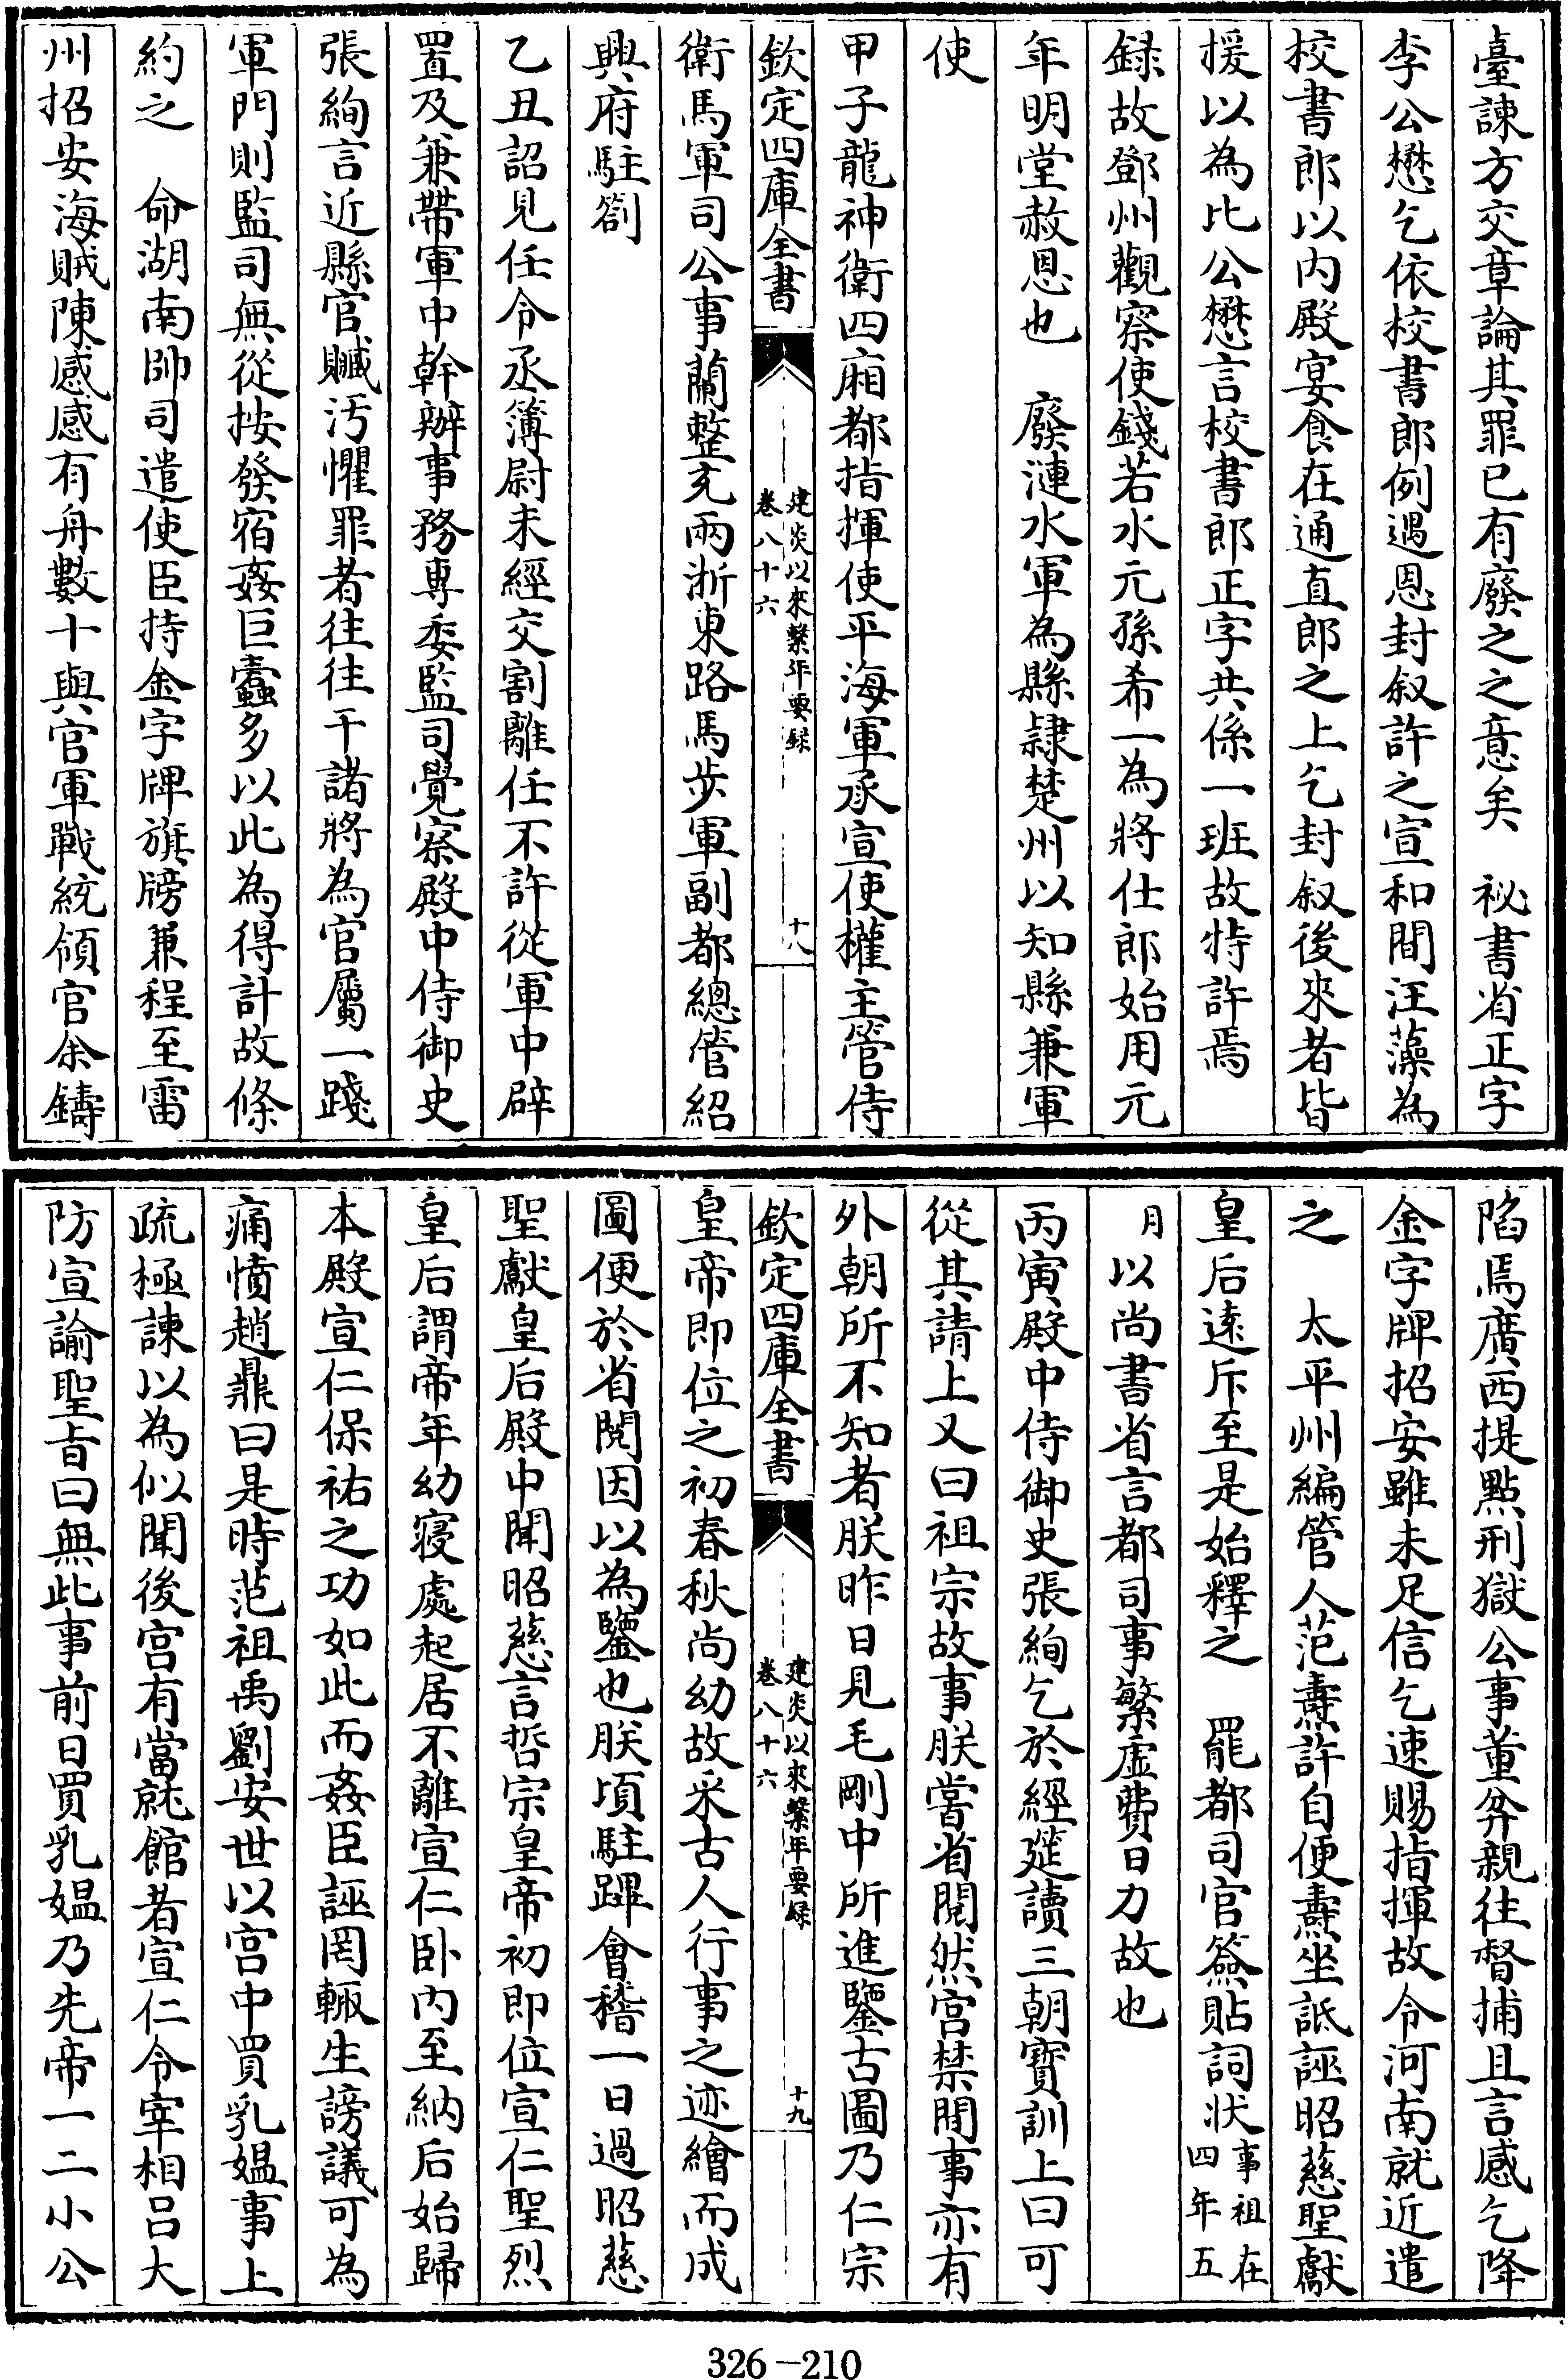 臺諫方交章論其罪已有廢之之意矣　祕書省正字
李公懋乞依校書郎例遇恩封叙許之宣和間汪藻為
校書郎以内殿宴食在通直郎之上乞封叙後來者皆
援以為比公懋言校書郎正字共係一班故特許焉
録故鄧州觀察使錢若水元孫希一為將仕郎始用元
年明堂赦恩也　廢漣水軍為縣隷楚州以知縣兼軍
使
甲子龍神衛四廂都指揮使平海軍承宣使權主管侍
欽定四庫全書
建炎以來繫年要録
卷八十六
十八
衛馬軍司公事蘭整充兩浙東路馬步軍副都總管紹
興府駐劄
乙丑詔見任令丞簿尉未經交割離任不許從軍中辟
置及兼帶軍中幹辦事務専委監司覺察殿中侍御史
張絢言近縣官贓汚懼罪者往往干諸將為官屬一踐
軍門則監司無從按發宿姦巨蠹多以此為得計故條
約之　命湖南帥司遣使臣持金字牌旗牓兼程至雷
州招安海賊陳感感有舟數十與官軍戰統領官余鑄
陷焉廣西提點刑獄公事董弅親往督捕且言感乞降
金字牌招安雖未足信乞速賜指揮故令河南就近遣
之　太平州編管人范燾許自便燾坐詆誣昭慈聖獻
皇后逺斥至是始釋之　罷都司官簽貼詞状事祖在
四年五
月以尚書省言都司事繁虛費日力故也
丙寅殿中侍御史張絢乞於經筵讀三朝寳訓上曰可
從其請上又曰祖宗故事朕嘗省閱然宫禁間事亦有
外朝所不知者朕昨日見毛剛中所進鑒古圖乃仁宗
欽定四庫全書
建炎以來繫年要録
卷八十六
十九
皇帝即位之初春秋尚幼故采古人行事之迹繪而成
圖便於省閱因以為鑒也朕頃駐蹕會稽一日過昭慈
聖獻皇后殿中聞昭慈言哲宗皇帝初即位宣仁聖烈
皇后謂帝年幼寢處起居不離宣仁卧内至納后始歸
本殿宣仁保祐之功如此而姦臣誣罔輒生謗議可為
痛憤趙鼎曰是時范祖禹劉安世以宫中買乳媼事上
疏極諫以為似聞後宫有當就館者宣仁令宰相吕大
防宣諭聖㫖曰無此事前日買乳媼乃先帝一二小公
326-210